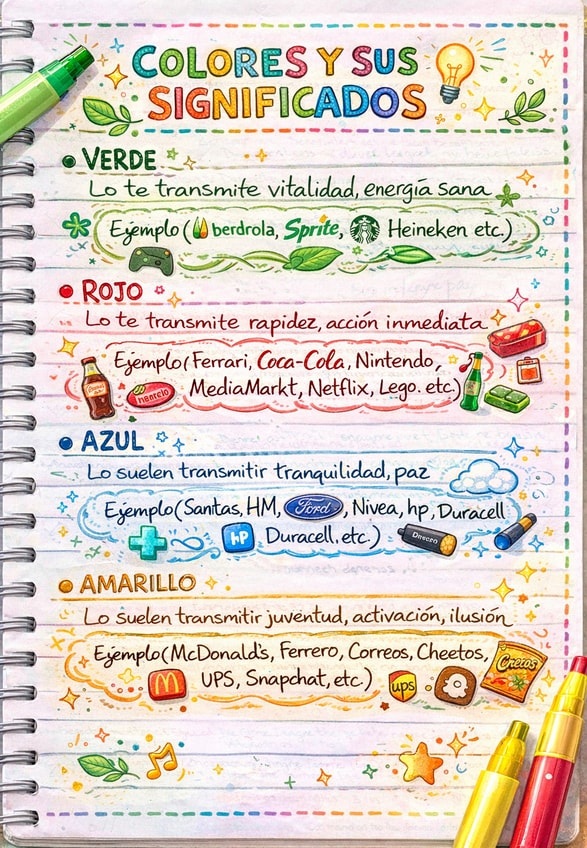 COLORES Y SUS
SIGNIFICADOS
• VERDE
Lo te transmite vitalidad, energía sana
Ejemplo (Iberdrola, Sprite, Heineken etc.)
• ROJO
Lo te transmite rapidez, acción inmediata
Ejemplo (Ferrari, Coca-Cola, Nintendo,
MediaMarkt, Netflix, Lego. etc.)
• AZUL
Lo suelen transmitir tranquilidad, paz
Ejemplo (Sanitas, HM, Ford, Nivea, hp, Duracell
hp Duracell, etc.)
• AMARILLO
Lo suelen transmitir juventud, activación, ilusión
Ejemplo (McDonald's, Ferrero, Correos, Cheetos,
UPS, Snapchat, etc.)
ups